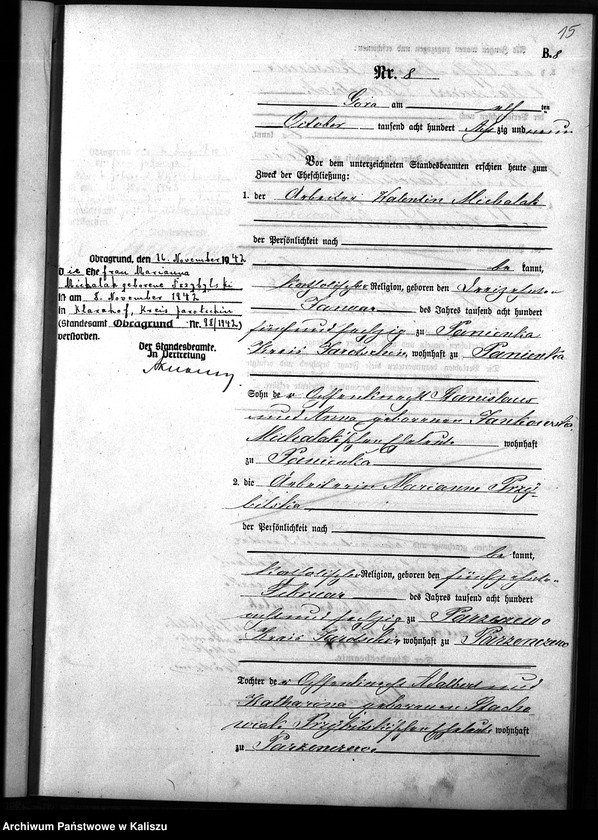 15
B. 8
Nr. 8
Góra am elf ten
October tausend acht hundert Acht zig und neun
Vor dem unterzeichneten Standesbeamten erschien heute zum
Zweck der Eheschließung:
1. der Arbeiter Valentin Michalak
der Persönlichkeit nach
be kannt,
katholischer Religion, geboren den dreizehnten
Januar des Jahres tausend acht hundert
fünf und sechzig zu Panienka
Kreis Jarotschin, wohnhaft zu Panienka
Sohn der Ochsenknecht Stanislaus
und Anna geborenen Jankowska
Michalakschen Eheleute wohnhaft
zu Panienka
2. die Arbeiterin Marianna Przy-
bilska
der Persönlichkeit nach
be kannt,
katholischer Religion, geboren den fünfzehnten
Februar des Jahres tausend acht hundert
acht und sechzig zu
Kreis Jarotschin, wohnhaft zu
Tochter der Ochsenknecht Adalbert und
Katharina geborenen Stacho
wiak Przybilskischen Eheleute wohnhaft
zu
Obragrund, den 16. November 1942
Die Ehefrau Marianna
Michalak geborene
ist am 8. November 1942
in Klarahof, Kreis Jarotschin
(Standesamt Obragrund Nr. 98/1942)
verstorben.
Der Standesbeamte.
In Vertretung
Archiwum Państwowe w Kaliszu